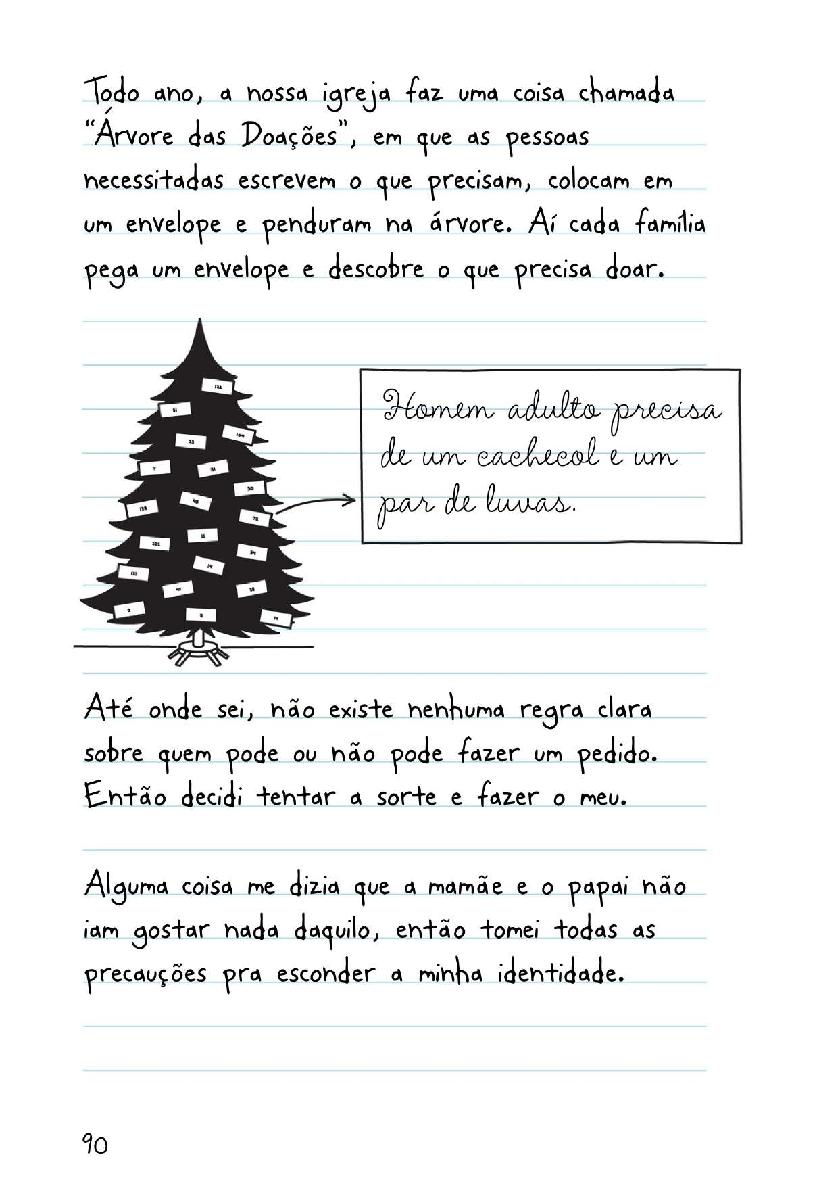 Todo ano, a nossa igreja faz uma coisa chamada
"Árvore das Doações", em que as pessoas
necessitadas escrevem o que precisam, colocam em
um envelope e penduram na árvore. Aí cada família
pega um envelope e descobre o que precisa doar.
Homem adulto precisa
de um cachecol e um
par de luvas.
Até onde sei, não existe nenhuma regra clara
sobre quem pode ou não pode fazer um pedido.
Então decidi tentar a sorte e fazer o meu.
Alguma coisa me dizia que a mamãe e o papai não
iam gostar nada daquilo, então tomei todas as
precauções pra esconder a minha identidade.
90